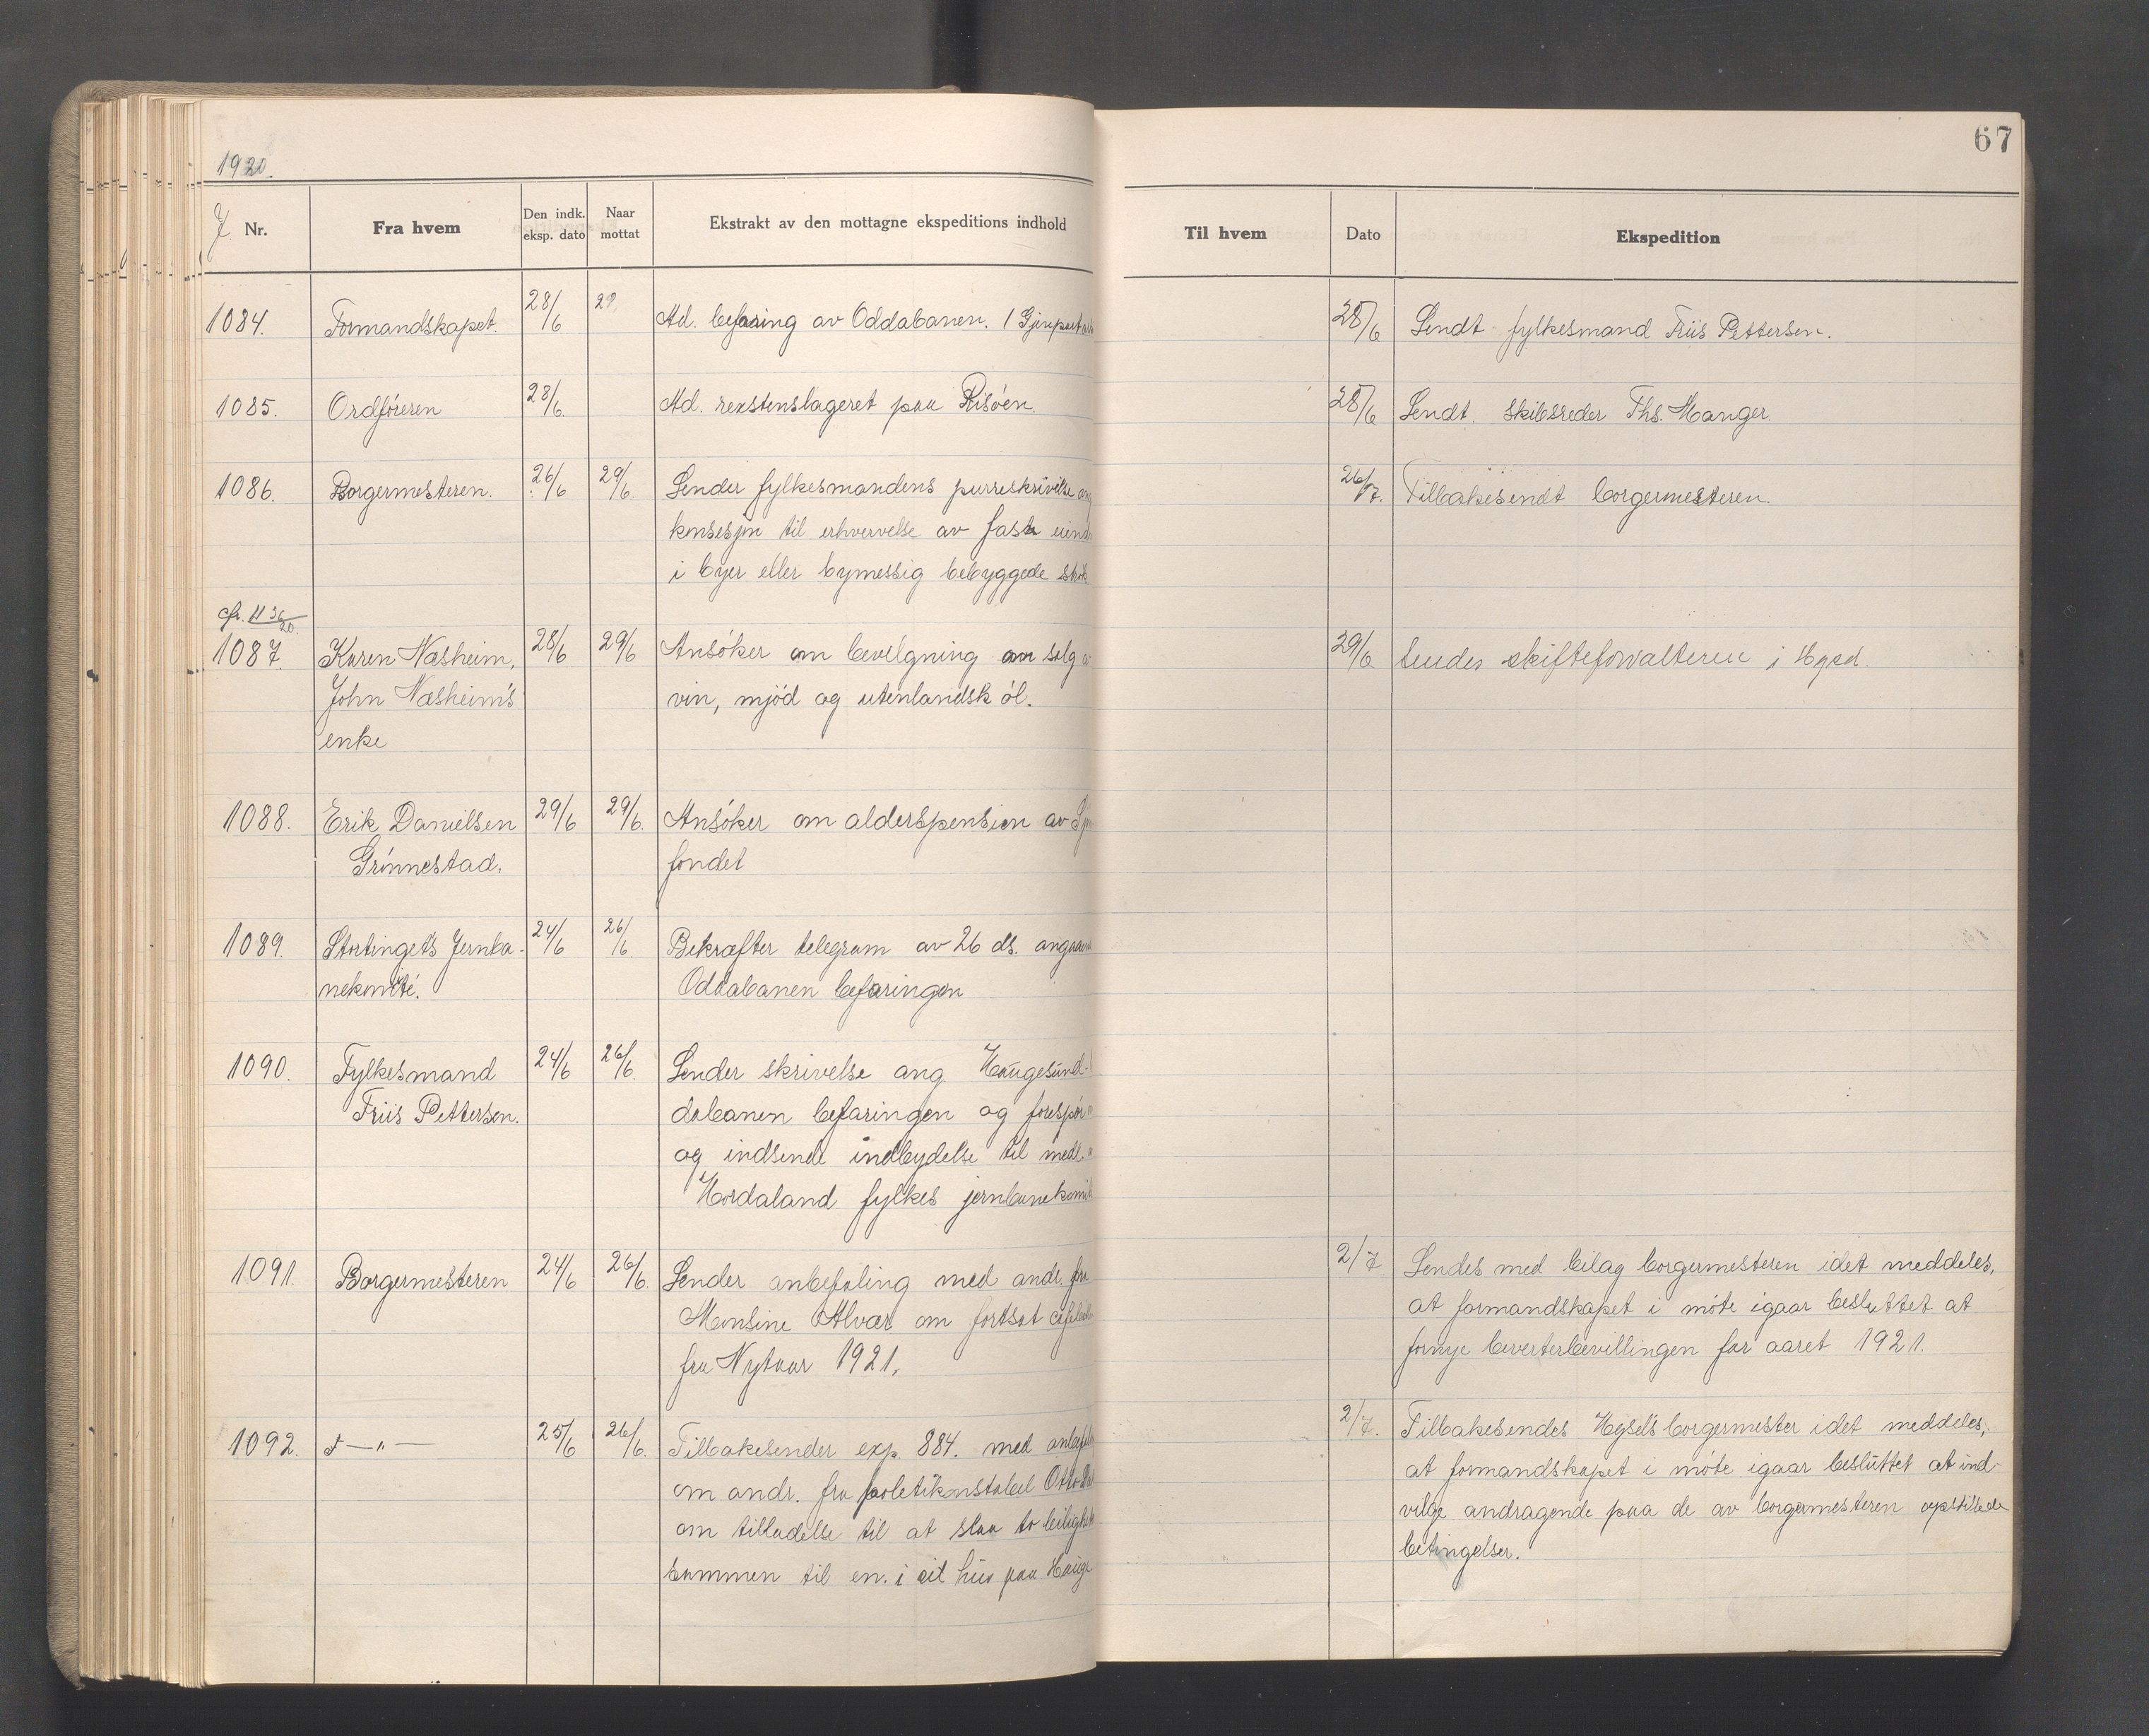 67
1920.
J. Nr.
Fra hvem
Den indk. eksp. dato
Naar mottat
Ekstrakt av den mottagne ekspeditions indhold
Til hvem
Dato
Ekspedition
1084. Formandskapet. 28/6 Ad. befaring av Oddabanen. 28/6 Sendt fylkesmand Friis Pettersen.
1085. Ordföreren 28/6 Ad. paa Risöen. 28/6 Sendt skibsreder Ths. Manger.
1086. Borgermesteren. 26/6 29/6. Sender fylkesmandens purreskrivelse 26/7. Tilbakesendt borgermesteren.
konsesjon til erhvervelse av faste
i byer eller bymessig bebyggede
cfr. 1136/20.
1087. Karen Næsheim, 28/6 29/6 Ansöker om bevilgning om salg 29/6 Sendes skifteforvalteren i Hgsd.
John Næsheim's vin, mjöd og utenlandsk öl.
enke
1088. Erik Danielsen 29/6 29/6. Ansöker om alderspension av
Grönnestad. fondet
1089. Stortingets Jernba- 24/6 26/6. Bekræfter telegram av 26 ds.
nekomité. Oddabanen befaringen
1090. Fylkesmand 24/6 26/6. Sender skrivelse ang. Haugesund-
Friis Pettersen. dabanen befaringen og
og indsende indbydelse til
Hordaland fylkes
1091. Borgermesteren 24/6 26/6. Sender anbefaling med andr. fra 2/7 Sendes med bilag borgermesteren idet meddeles,
Monsine Alvær om fortsat at formandskapet i möte igaar besluttet at
fra Nytaar 1921. fornye beverterbevillingen for aaret 1921.
1092. —"— 25/6 26/6. Tilbakesender exp. 884. med 2/7. Tilbakesendes Hgsd's borgermester idet meddeles,
om andr. fra politikonstabel Otto at formandskapet i möte igaar besluttet at ind-
om tilladelse til at slaa to vilge andragende paa de av borgermesteren opstillede
sammen til en i sit hus paa betingelser.